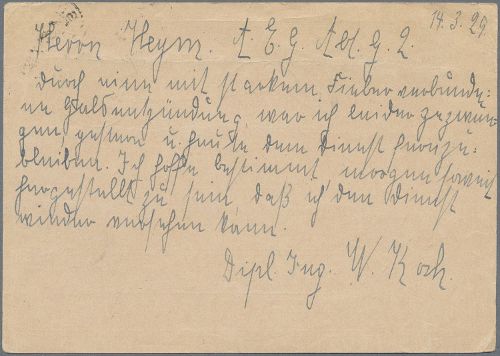 14.3.29.
Herrn Heym. A. E. G. Abt. G. 2.
Durch eine mit starkem Fieber verbunde-
ne Halsentzündung, war ich leider gezwun-
gen gestern u. heute dem Dienst fernzu-
bleiben. Ich hoffe bestimmt morgen soweit
hergestellt zu sein, daß ich den Dienst
wieder versehen kann.
Dipl. Ing. W. Koch.